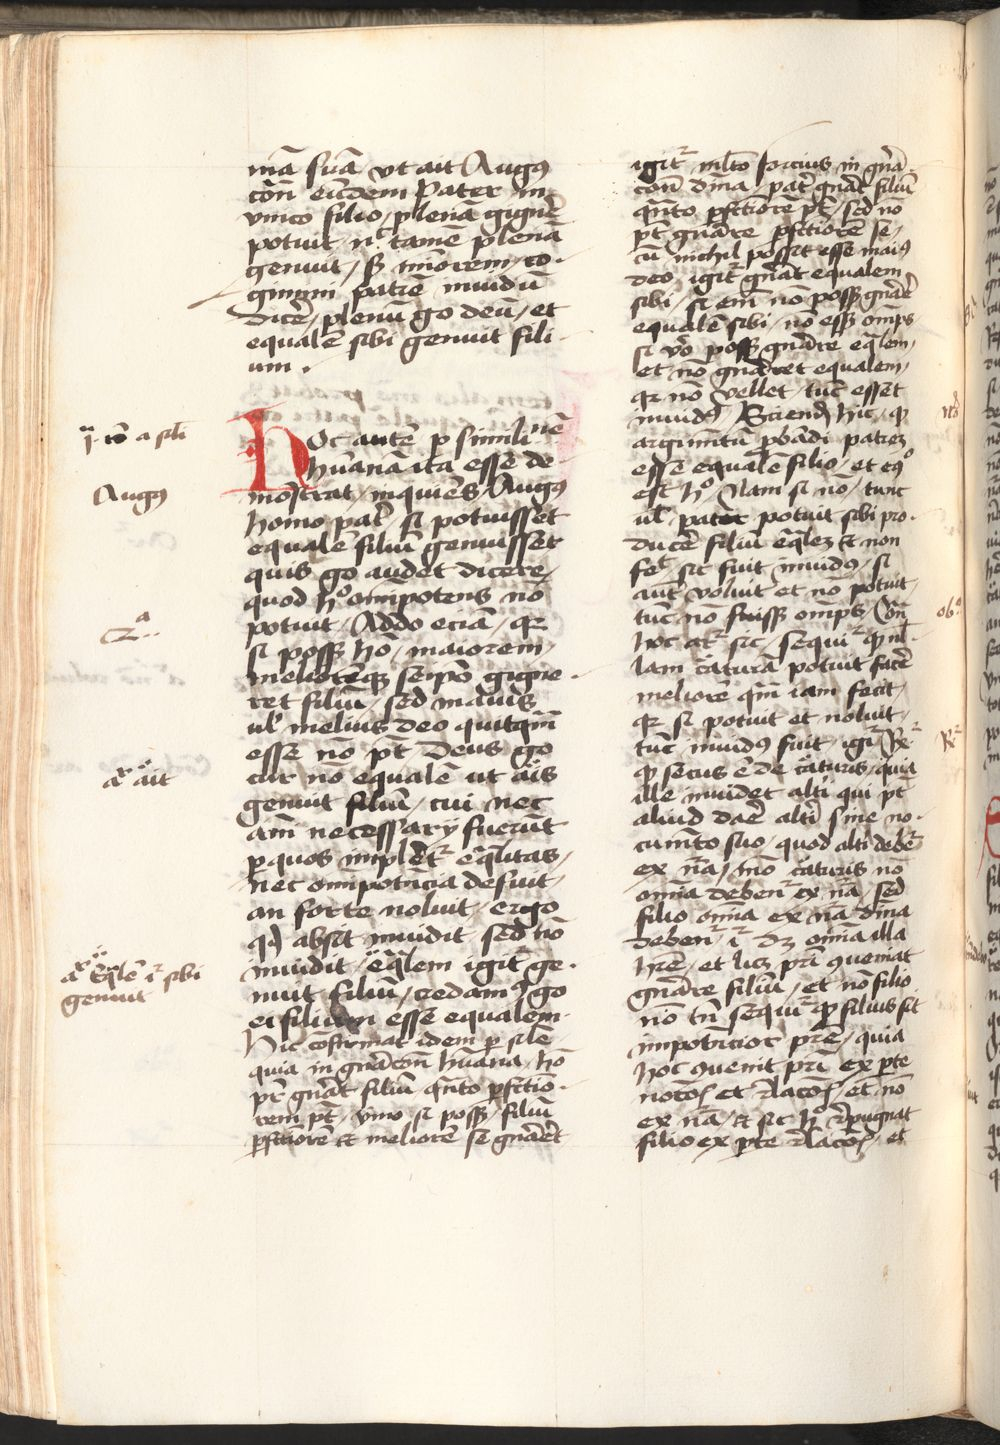 mā suā vt ait Augꝰ
cōn eūdem Pater in
vnico filio / plenā gignē
potuit / n̄ tamē plenā
genuit / ꝫ mīorem / co-
gimini patrē inuidū
dicē̄ / plenū g̊o deū / et
equalē sibi genuit fili-
um .
Hoc autē p̱ simili nē
hūanā ita esse de
mōstrat / inquiēs / Augꝰ
homo pat̄ / si potuisset
equalē filiū genuisset
quis g̊o audet dicere /
quod h̊ omnipotens nō
potuit / Addo eciā / qꝛ
si possꝫ hō / maiorem /
meliorēqꝫ seipō gigne-
ret filiū / sed maius
ul̄ melius deo quitqm̄
esse nō pt̄ Deus g̊o
cur nō equalē ut ais
genuit filiū / cui nec
am̄ necessarij fuerūt
p̱quos implet᷑ eq̄litas /
nec omīpotn̄cia defuit /
an forte noluit / ergo
qd̄ absit inuidit sed nō
inuidit / eq̄lem igit᷑ ge-
nuit filiū / credamꝰ g̊o
ei filium esse equalem .
Hic cōfirmat idem p̱ sīle
quia in gn̄acōn hūana / hō
pt̄ gn̄are filiū / qn̄to p̱fctio-
rem pt̄ / vmo si possꝫ / filiū
p̱fctiorē et meliorē se gn̄aret
igit᷑ ml̄to forcius in gn̄a-
cōn dīna / pat̄ gn̄at filiū
qn̄to p̱fctiorē pt̄ / sed nō
pt̄ gn̄are p̱fctiorē se /
cū nichil posset esse maiꝰ
deo / igit᷑ gn̄at equalem
sibi / si em̄ nō possꝫ gn̄are
equalē sibi / nō essꝫ omps̄
si vō possꝫ gn̄are eq̄lem /
et nō gn̄aret equalem /
qꝛ nō vellet / tūc esset
inuidꝰ / Sciend̄ hic / ꝙ
argumtū p̱bādi patrez
esse equalē filio / et eq̊
est h̊ / Nam si nō / tunc
ul̄ / pater potuit sibi pro-
ducē filiū eq̄lez et non
fec̄ / sic fuit inuidꝰ / si
aut̄ voluit et nō potuit /
tūc nō fuissꝫ omps̄ / Cōn̄
hoc ar᷑ sic / sequi᷑ ꝙ nl̄-
lam c̄aturā potuit facē
meliorē qm̄ iam fecit /
qꝛ si potuit et noluit /
tūc inuidꝰ fuit / igi᷑ / R᷑
ꝙ secus ē de c̄aturis / quia
ille inuidet alt̄i qui pt̄
aliud dare alt̄i sine no-
cumto suo / quod alti debe᷑
ex nā̄ / mō c̄aturis nō
oīnia deben᷑ ex nā̄ / sed
filio oīnia ex nā̄ dīna
deben᷑ / i᷑ dꝫ oīnia illa
hr̄e / et licꝫ pri 9ueniat
gn̄are filiū / et nō filio
nō tn̄ sequi᷑ ꝙ filius sit
impotn̄cior pr̄e / quia
hoc 9uenit pri ex p̱te
notōis et rlacōis / et nō
ex nā̄ / et sic h̊ repugnat
filio ex p̱te rlacōis / et
Augꝰ
aͣ ait
aͣ Eq̄lē i᷑ sibi
genuit
ob̊
R᷑